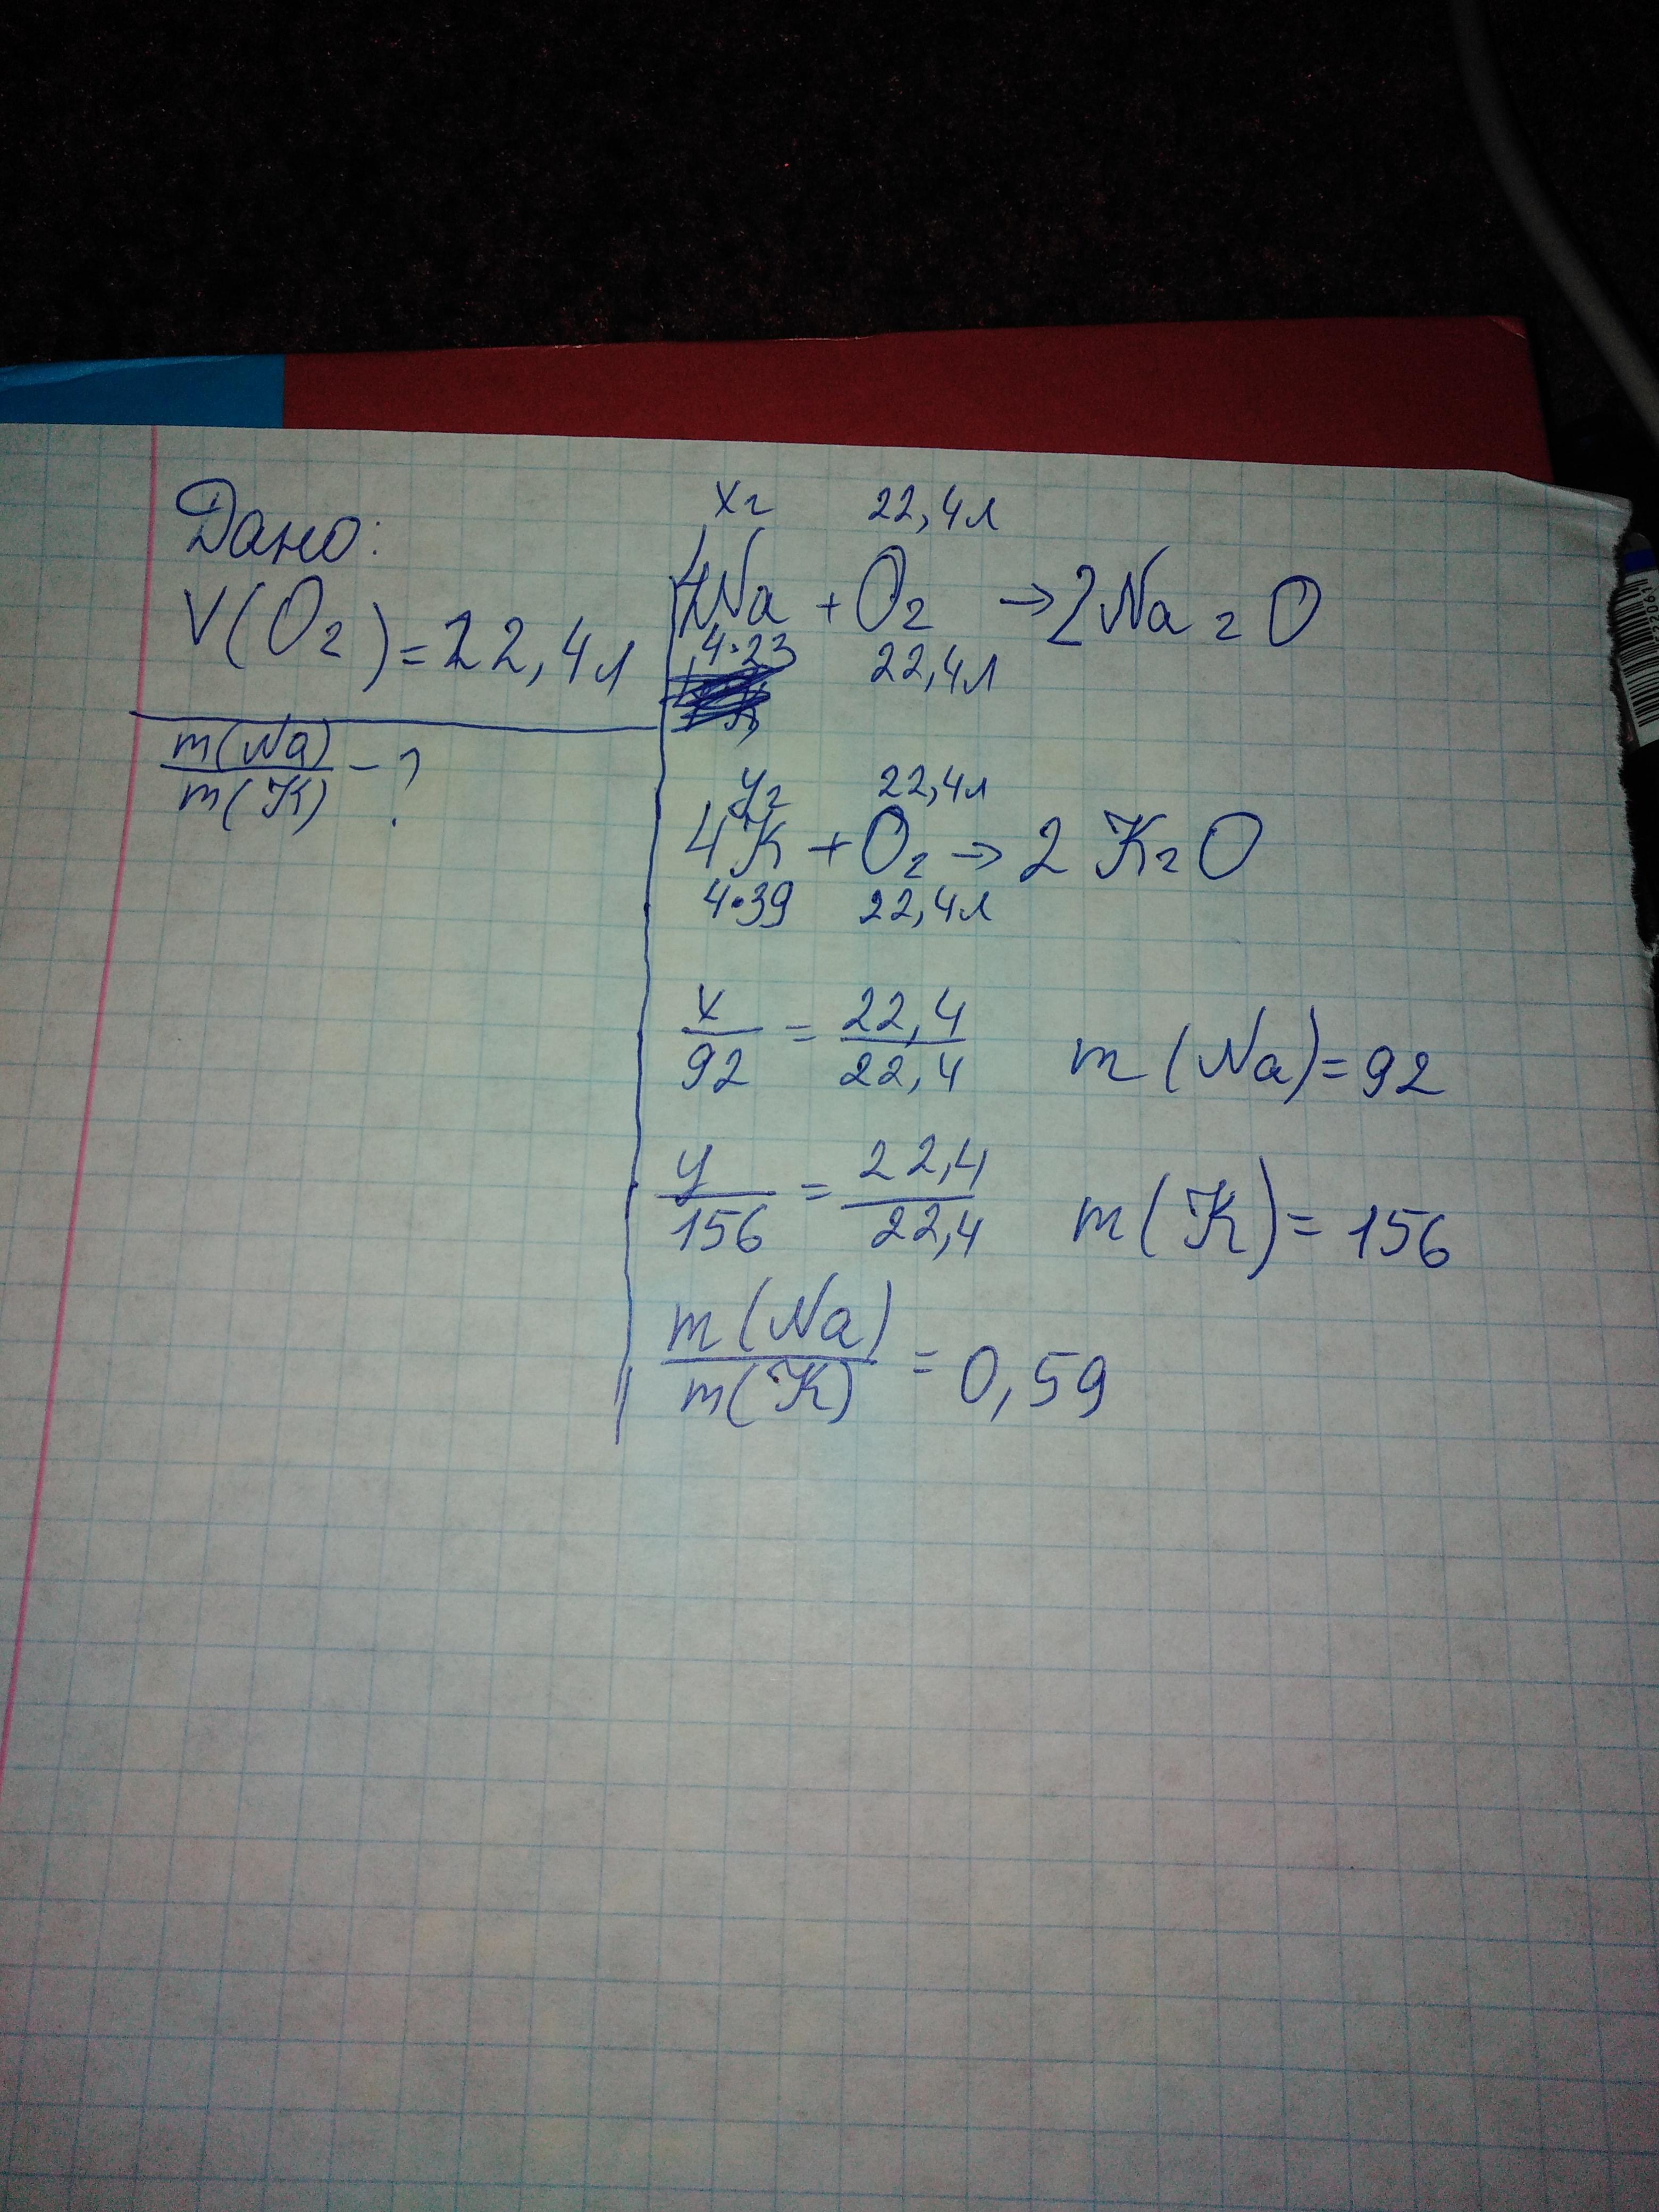 Дано:
V(O2)=22,4л
m(Na)/m(K) - ?
xг 22,4л
4Na + O2 → 2Na2O
4·23 22,4л
yг 22,4л
4K + O2 → 2K2O
4·39 22,4л
x/92 = 22,4/22,4 m(Na)=92
y/156 = 22,4/22,4 m(K)=156
m(Na)/m(K) = 0,59